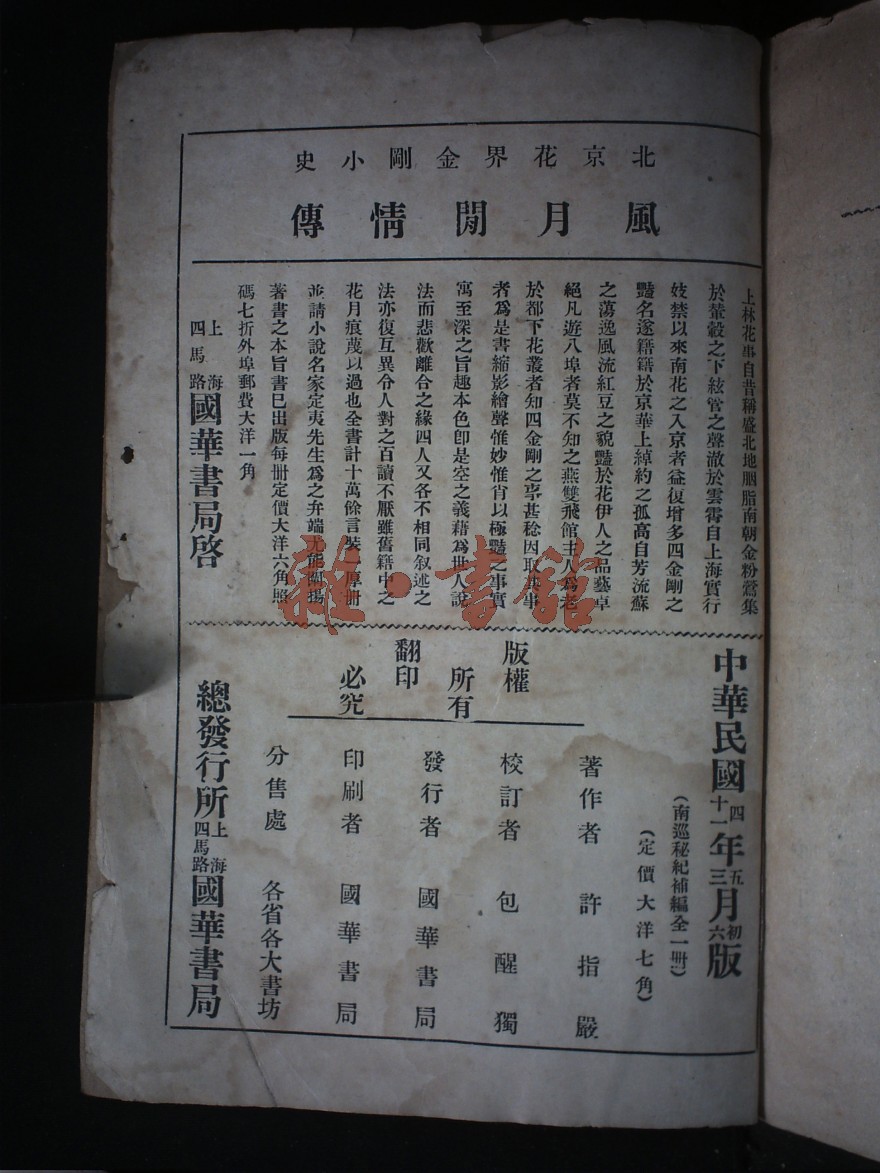 北京花界金剛小史
風月閒情傳
上林花事自昔稱盛北地胭脂南朝金粉鶯集
於輦轂之下絃管之聲澈於雲霄自上海實行
妓禁以來南花之入京者益復增多四金剛之
豔名遂籍籍於京華上綽約之孤高自芳流蘇
之蕩逸風流紅豆之貌豔於花伊人之品藝卓
絕凡遊八埠者莫不知之燕雙飛館主人為老
於都下花叢者知四金剛之事甚稔因取其事
者為是書縮影繪聲惟妙惟肖以極豔之事實
寓至深之旨趣本色卽是空之義藉為世人說
法而悲歡離合之緣四人又各不相同叙述之
法亦復互異令人對之百讀不厭雖舊籍中之
花月痕蔑以過也全書計十萬餘言裝一厚册
並請小說名家定夷先生為之弁端尤能闡揚
著書之本旨書已出版每册定價大洋六角照
碼七折外埠郵費大洋一角
上海四馬路國華書局啓
中華民國十四一年五三月初六版
(南巡秘紀補編全一册)
(定價大洋七角)
版權所有
翻印必究
著作者 許指嚴
校訂者 包醒獨
發行者 國華書局
印刷者 國華書局
分售處 各省各大書坊
總發行所 上海四馬路 國華書局
雜·書館